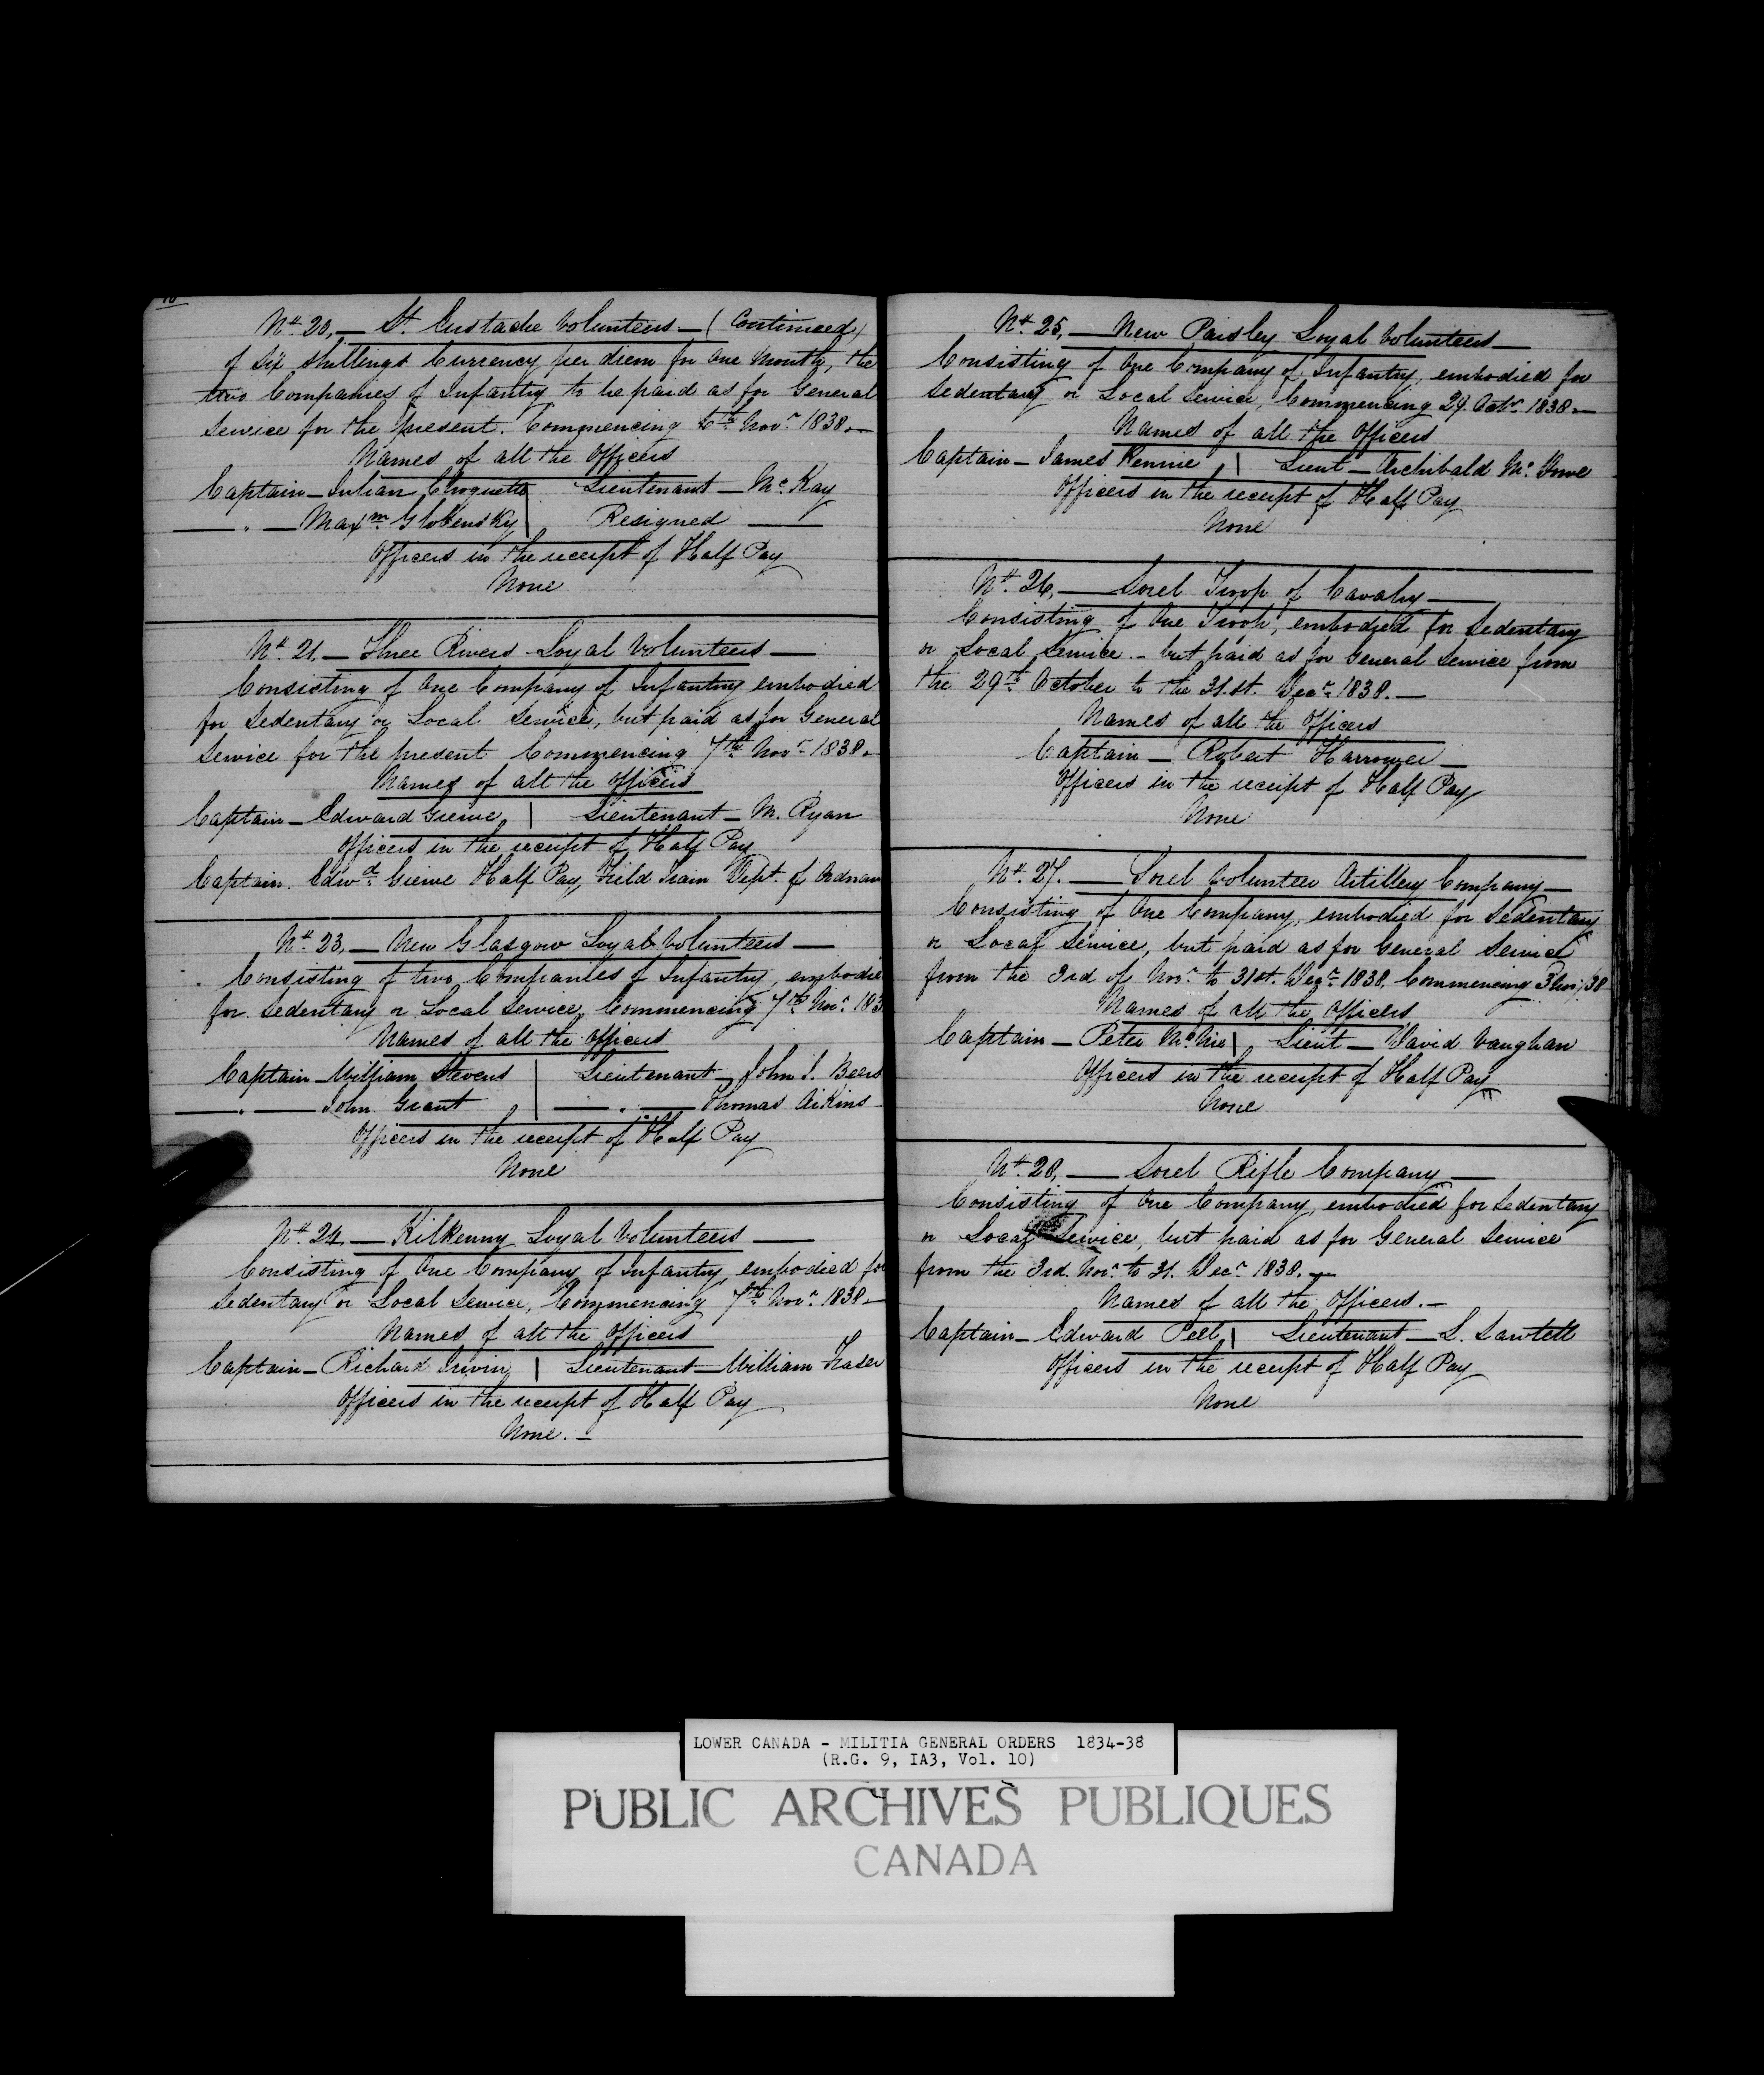 No. 20, — St. Eustache Volunteers — (Continued)
of Six Shillings Currency per diem for one Month, the
two Companies of Infantry to be paid as for General
Service for the present. Commencing 6th Novr. 1838. —
Names of all the Officers
Captain — Julian Choquette Lieutenant — McKay
— " — Maxm. Globensky Resigned —
Officers in the receipt of Half Pay
None
No. 21. — Three Rivers Loyal Volunteers —
Consisting of One Company of Infantry embodied
for Sedentary or Local Service, but paid as for General
Service for the present Commencing 7th Novr. 1838.
Names of all the Officers
Captain — Edward Greive, Lieutenant — M. Ryan
Officers in the receipt of Half Pay
Captain. Edwd. Greive Half Pay, Field Train Dept. of Ordnan
No. 23, — New Glasgow Loyal Volunteers —
Consisting of two Companies of Infantry, embodie
for Sedentary or Local Service, Commencing 7th Novr. 183
Names of all the Officers
Captain — William Stevens Lieutenant — John I. Beers
— " — John Grant — " — Thomas Aikins
Officers in the receipt of Half Pay
None
No. 24. — Kilkenny Loyal Volunteers —
Consisting of One Company of Infantry, embodied fo
Sedentary or Local Service, Commencing 7th Novr. 1838 —
Names of all the Officers
Captain — Richard Irwin, Lieutenant — William Fraser
Officers in the receipt of Half Pay
None. —
No. 25, — New Paisley Loyal Volunteers —
Consisting of One Company of Infantry, embodied for
Sedentary or Local Service, Commencing 29. Octr. 1838. —
Names of all the Officers
Captain — James Rennie, Lieut — Archibald Mc.
Officers in the receipt of Half Pay
None
No. 26, — Sorel Troop of Cavalry —
Consisting of One Troop, embodied for Sedentary
or Local Service. — but paid as for General Service from
the 29th. October to the 31st. Decr. 1838. —
Names of all the Officers
Captain — Robert Harrower —
Officers in the receipt of Half Pay
None
No. 27. — Sorel Volunteer Artillery Company —
Consisting of One Company, embodied for Sedentary
or Local Service, but paid as for General Service
from the 3rd of Novr. to 31st. Decr. 1838, Commencing 3 Nov/38
Names of all the Officers
Captain — Peter McNie, Lieut — David Vaughan
Officers in the receipt of Half Pay
None
No. 28, — Sorel Rifle Company —
Consisting of One Company, embodied for Sedentary
or Local Service, but paid as for General Service
from the 3rd. Novr. to 31. Decr. 1838. —
Names of all the Officers. —
Captain — Edward Pell, Lieutenant — L. Sawtell
Officers in the receipt of Half Pay
None
LOWER CANADA - MILITIA GENERAL ORDERS 1834-38
(R.G. 9, IA3, Vol. 10)
PUBLIC ARCHIVES PUBLIQUES
CANADA